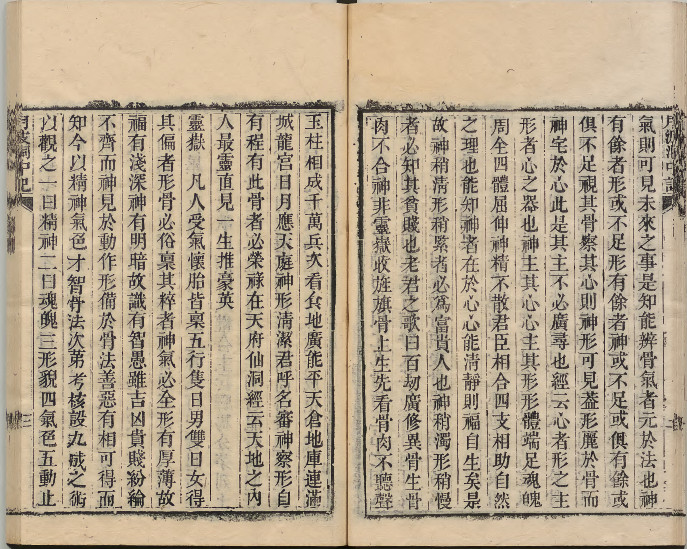 月波洞中記
氣則可見未來之事是知能辨骨氣者元於法也神
有餘者形或不足形有餘者神或不足或俱有餘或
俱不足視其骨察其心則神形可見蓋形麗於骨而
神宅於心此是其主不必廣尋也經云心者形之主
形者心之器也神主其心心主其形形體端足魂魄
周全四體屈伸神精不散君臣相合四支相助自然
之理也能知神者在於心心能清靜則福自生矣是
故神稍清形稍累者必為富貴人也神稍濁形稍慢
者必知其貧賤也老君之歌曰百劫廣修異骨生骨
肉不合神非靈嶽收旌旗骨上生先看骨肉不聽聲
玉柱相成千萬兵次看食地廣能平天倉地庫連滿
城龍宮日月應天庭神形清潔君呼名審神察形自
有程有此骨者必榮祿在天府仙洞經云天地之內
人最靈直見一生推豪英
靈嶽 凡人受氣懷胎皆稟五行隻日男雙日女得
其偏者形骨必俗稟其粹者神氣必全形有厚薄故
福有淺深神有明暗故識有智愚雖吉凶貴賤紛綸
不齊而神見於動作形備於骨法善惡有相可得而
知今以精神氣色才智骨法次第考核設九成之術
以觀之一曰精神二曰魂魄三形貌四氣色五動止
月波洞中記
三